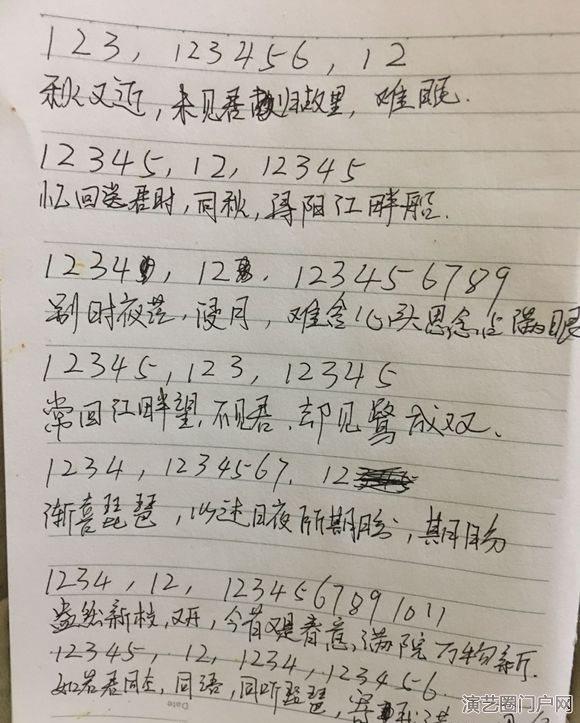 123, 123456, 12
秋又近,未见君归故里,难眠.
12345, 12, 12345
忆回送君时,同秋,浔阳江畔船.
1234, 12, 123456789
别时夜茫,浸月,难舍心头思念占满眼
12345, 123, 12345
常回江畔望,不见君,却见鹭成双、
1234, 1234567, 12
渐喜琵琶,以述日夜所期盼,期盼
1234, 12, 1234567891011
盎然新枝,又开,今昔又是春意,满院万物新
12345, 12, 1234, 123456.
如若君同在,同语,同听琵琶,
Date
演艺圈门户网